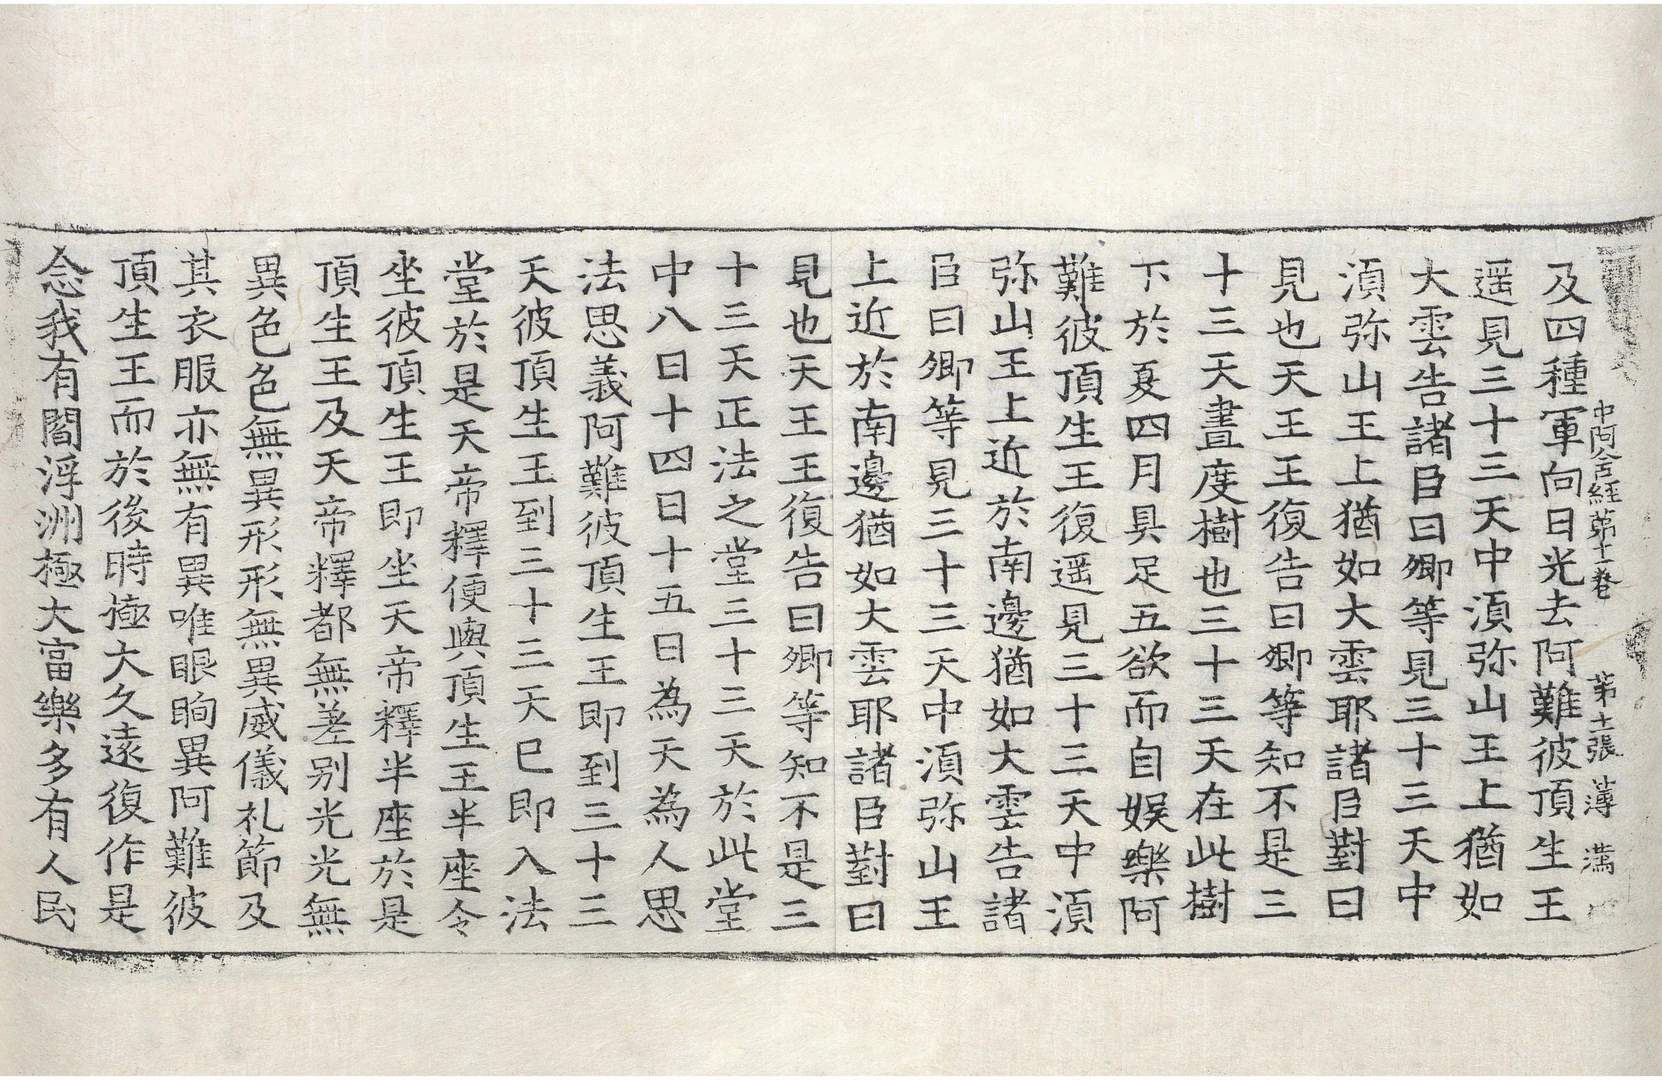 中阿含經第十一卷 第十一張 薄 滿
及四種軍向日光去阿難彼頂生王
遥見三十三天中湏弥山王上猶如
大雲告諸臣曰卿等見三十三天中
湏弥山王上猶如大雲耶諸臣對曰
見也天王王復告曰卿等知不是三
十三天晝度樹也三十三天在此樹
下於夏四月具足五欲而自娛樂阿
難彼頂生王復遥見三十三天中湏
弥山王上近於南邊猶如大雲告諸
臣曰卿等見三十三天中湏弥山王
上近於南邊猶如大雲耶諸臣對曰
見也天王王復告曰卿等知不是三
十三天正法之堂三十三天於此堂
中八日十四日十五日為天為人思
法思義阿難彼頂生王即到三十三
天彼頂生王到三十三天已即入法
堂於是天帝釋便與頂生王半座令
坐彼頂生王即坐天帝釋半座於是
頂生王及天帝釋都無差别光光無
異色色無異形形無異威儀礼節及
其衣服亦無有異唯眼眴異阿難彼
頂生王而於後時極大久遠復作是
念我有閻浮洲極大富樂多有人民